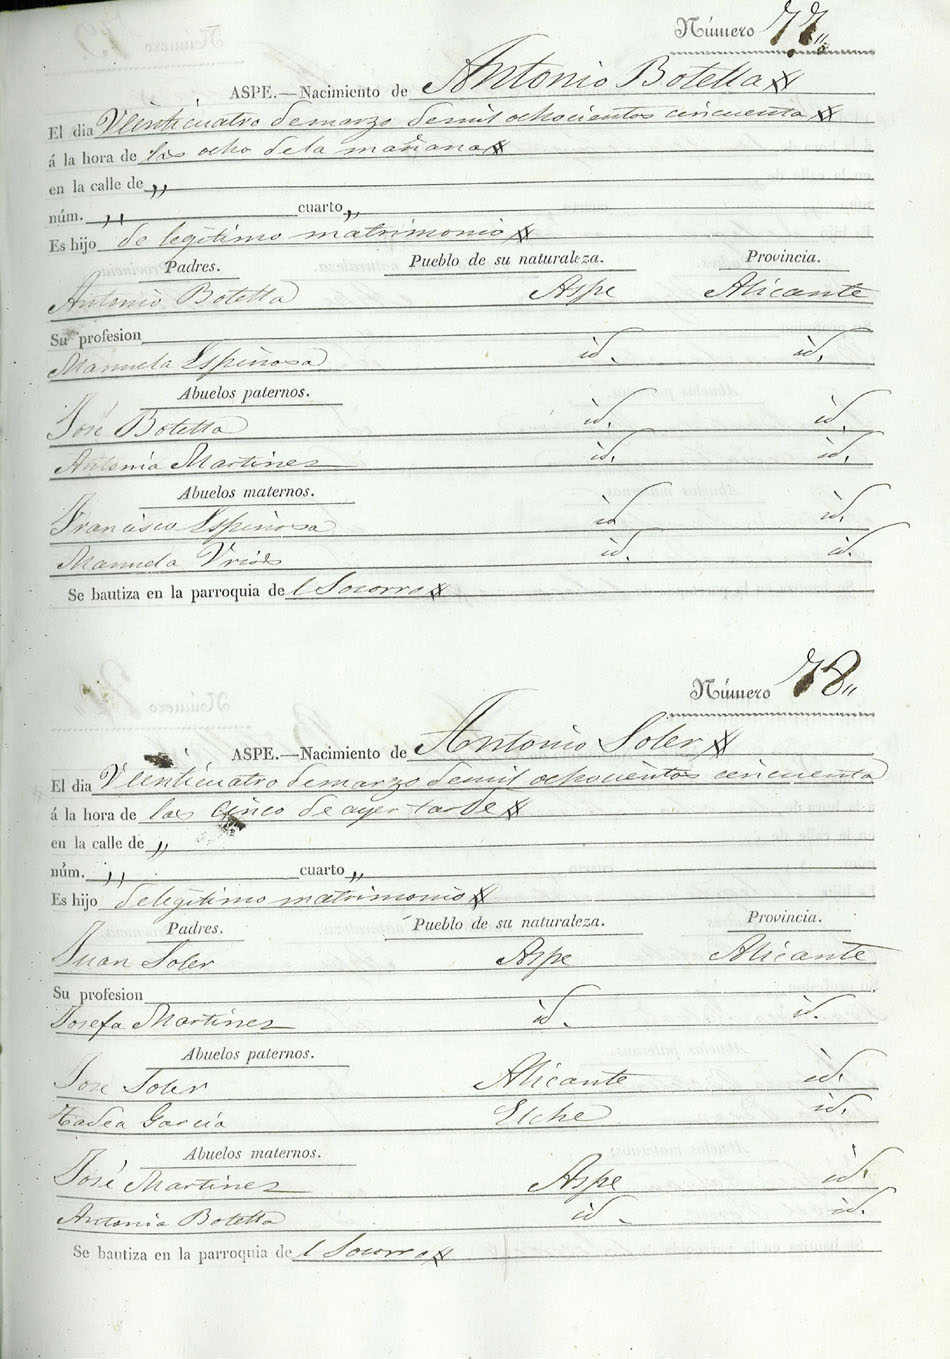 Número 77„
ASPE.—Nacimiento de Antonio Botella
El dia Veinticuatro de marzo de mil ochocientos cincuenta
á la hora de las ocho de la mañana
en la calle de „
núm. „ cuarto „
Es hijo de legitimo matrimonio
Padres. Pueblo de su naturaleza. Provincia.
Antonio Botella Aspe Alicante
Su profesion
Manuela Espinosa id. id.
Abuelos paternos.
José Botella id. id.
Antonia Martinez id. id.
Abuelos maternos.
Francisco Espinosa id id.
Manuela id. id.
Se bautiza en la parroquia del Socorro
Número 78„
ASPE.—Nacimiento de Antonio Soler
El dia Veinticuatro de marzo de mil ochocientos cincuenta
á la hora de las cinco de ayer tarde
en la calle de „
núm. „ cuarto „
Es hijo de legitimo matrimonio
Padres. Pueblo de su naturaleza. Provincia.
Juan Soler Aspe Alicante
Su profesion
Josefa Martinez id. id.
Abuelos paternos.
José Soler Alicante id.
Tadea Garcia Elche id.
Abuelos maternos.
José Martinez Aspe id.
Antonia Botella id. id.
Se bautiza en la parroquia del Socorro